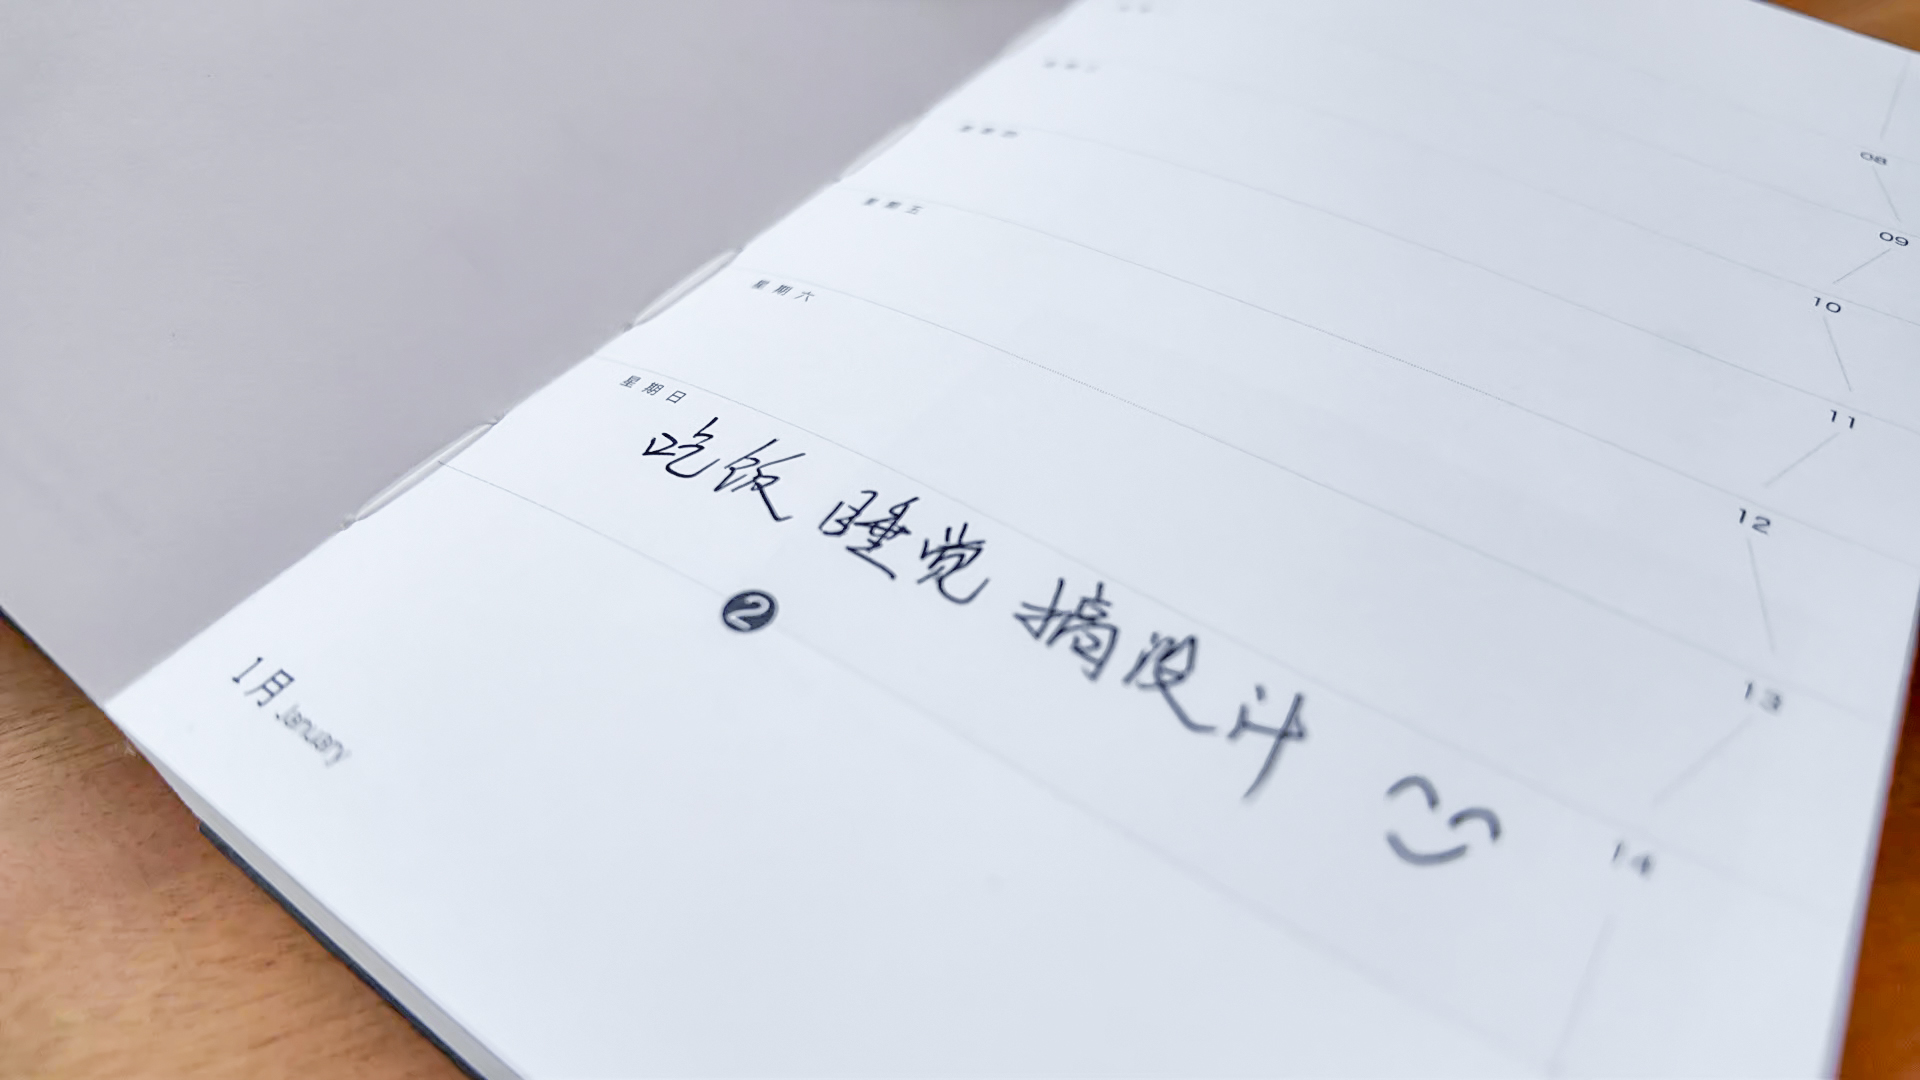 08
09
星期五
10
星期六
11
星期日
12
吃饭 睡觉 搞设计
13
2
14
1月 January